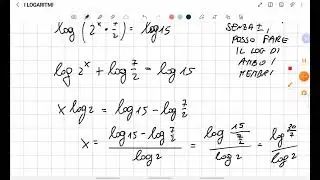 I LOGARITMI
log (2^x · 7/2) = log 15
SENZA I,
POSSO FARE
IL LOG DI
AMBO I
MEMBRI
log 2^x + log 7/2 = log 15
x log 2 = log 15 - log 7/2
x = (log 15 - log 7/2) / log 2 = (log 15/(7/2)) / log 2 = (log 30/7) / log 2